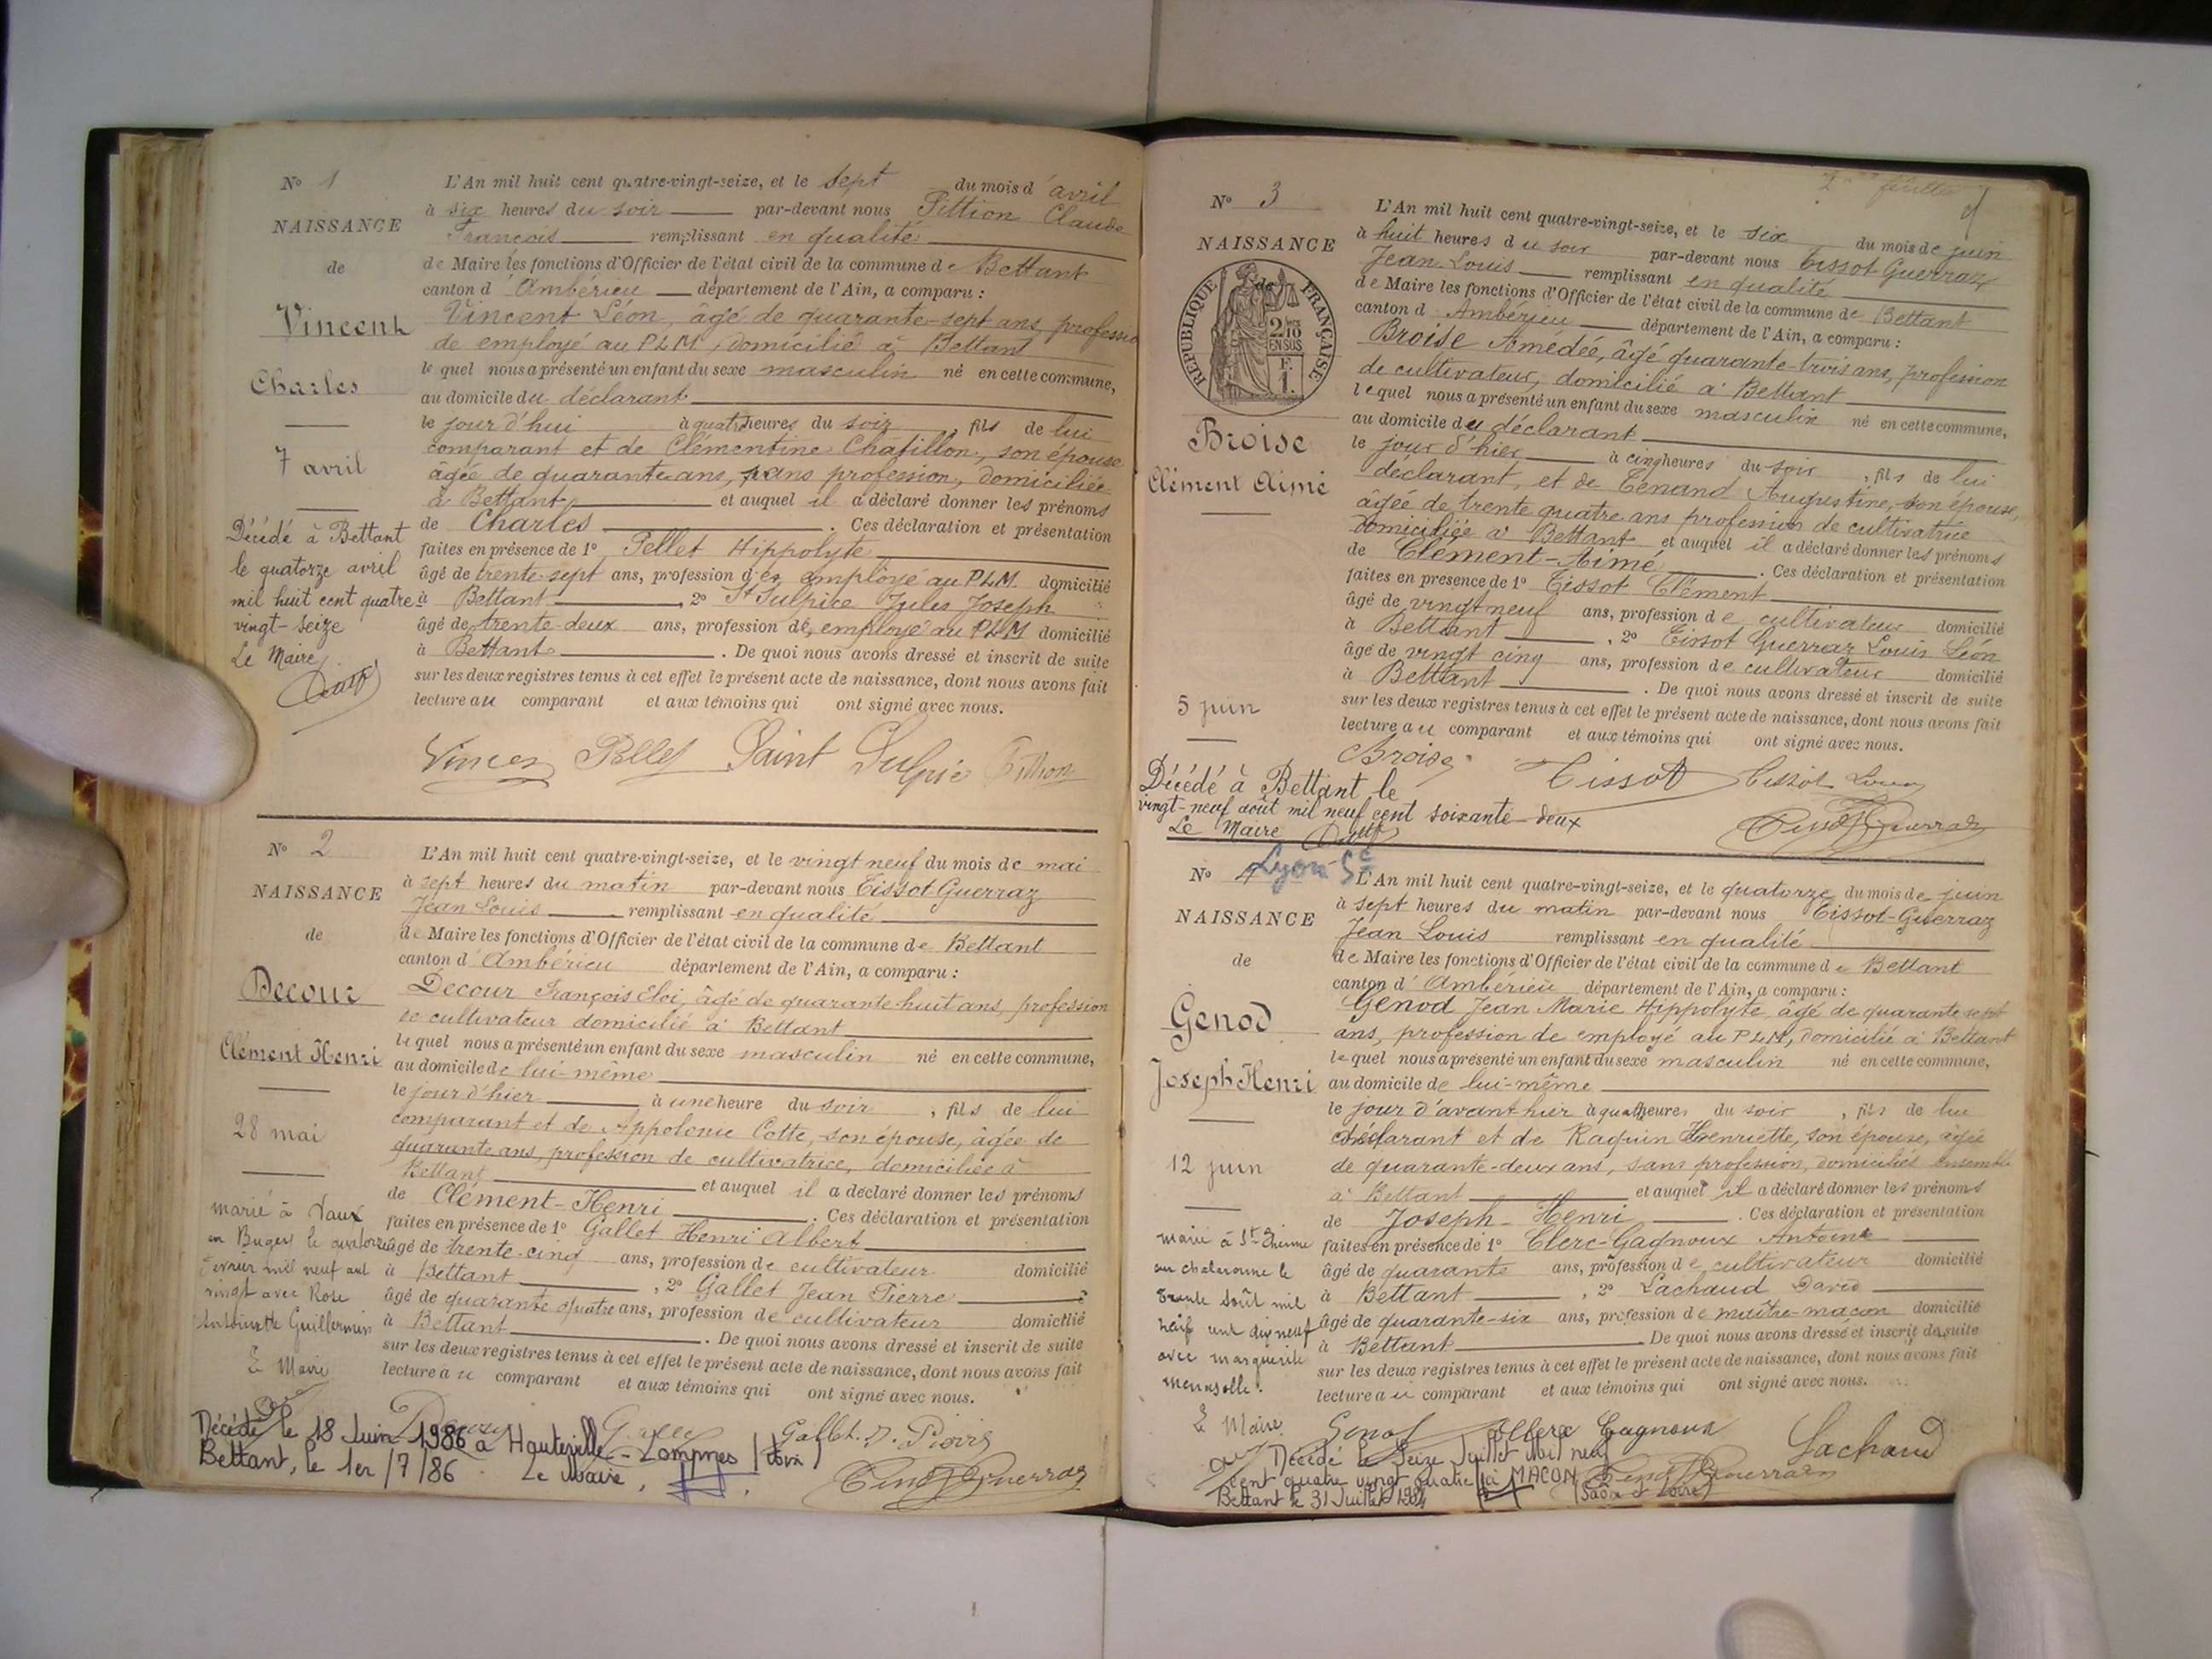 N° 1
NAISSANCE
de
Vincent
Charles
7 avril
Décédé à Bettant
le quatorze avril
mil huit cent quatre
vingt-seize
Le Maire
L'An mil huit cent quatre-vingt-seize, et le sept du mois d'avril
à six heures du soir par-devant nous Pittion Claude
François remplissant en qualité
de Maire les fonctions d'Officier de l'état civil de la commune de Bettant
canton d'Ambérieu département de l'Ain, a comparu :
Vincent Léon, âgé de quarante-sept ans, profession
de employé au PLM, domicilié à Bettant
lequel nous a présenté un enfant du sexe masculin né en cette commune,
au domicile du déclarant
le jour d'hui à quatre heures du soir, fils de lui
comparant et de Clémentine Chatillon, son épouse
âgée de quarante ans, sans profession, domiciliée
à Bettant et auquel il a déclaré donner les prénoms
de Charles. Ces déclaration et présentation
faites en présence de 1° Pellet Hippolyte
âgé de trente-sept ans, profession d'ex employé au PLM domicilié
à Bettant, 2° St Sulpice Jules Joseph
âgé de trente-deux ans, profession de employé au PLM domicilié
à Bettant. De quoi nous avons dressé et inscrit de suite
sur les deux registres tenus à cet effet le présent acte de naissance, dont nous avons fait
lecture au comparant et aux témoins qui ont signé avec nous.
Vincent Pellet Saint Sulpice Pittion
N° 2
NAISSANCE
de
Decour
Clément Henri
28 mai
marié à Vaux
en Bugey le quatorze
février mil neuf cent
vingt avec Rose
Antoinette Guillermin
Le Maire
L'An mil huit cent quatre-vingt-seize, et le vingt neuf du mois de mai
à sept heures du matin par-devant nous Tissot Guerraz
Jean Louis remplissant en qualité
de Maire les fonctions d'Officier de l'état civil de la commune de Bettant
canton d'Ambérieu département de l'Ain, a comparu :
Decour François Eloi, âgé de quarante-huit ans, profession
de cultivateur domicilié à Bettant
lequel nous a présenté un enfant du sexe masculin né en cette commune,
au domicile de lui-même
le jour d'hier à une heure du soir, fils de lui
comparant et de Appolonie Cotte, son épouse, âgée de
quarante ans, profession de cultivatrice, domiciliée à
Bettant et auquel il a déclaré donner les prénoms
de Clément-Henri. Ces déclaration et présentation
faites en présence de 1° Gallet Henri Albert
âgé de trente-cinq ans, profession de cultivateur domicilié
à Bettant, 2° Gallet Jean Pierre
âgé de quarante quatre ans, profession de cultivateur domicilié
à Bettant. De quoi nous avons dressé et inscrit de suite
sur les deux registres tenus à cet effet le présent acte de naissance, dont nous avons fait
lecture au comparant et aux témoins qui ont signé avec nous.
Gallet J. Pierre
Tissot Guerraz
Décédé le 18 Juin 1986 à Hauteville-Lompnes (Ain)
Bettant, le 1er/7/86 Le Maire,
N° 3
NAISSANCE
de
RÉPUBLIQUE FRANÇAISE
2/10 EN SUS
F. 1.
Broise
Clément Aimé
5 juin
2me feuillet
L'An mil huit cent quatre-vingt-seize, et le six du mois de juin
à huit heures du soir par-devant nous Tissot-Guerraz
Jean-Louis remplissant en qualité
de Maire les fonctions d'Officier de l'état civil de la commune de Bettant
canton d'Ambérieu département de l'Ain, a comparu :
Broise Amédée, âgé quarante-trois ans, profession
de cultivateur, domicilié à Bettant
lequel nous a présenté un enfant du sexe masculin né en cette commune,
au domicile du déclarant
le jour d'hier à cinq heures du soir, fils de lui
déclarant, et de Tenand Augustine, son épouse,
âgée de trente quatre ans profession de cultivatrice
domiciliée à Bettant et auquel il a déclaré donner les prénoms
de Clément-Aimé. Ces déclaration et présentation
faites en présence de 1° Tissot Clément
âgé de vingt neuf ans, profession de cultivateur domicilié
à Bettant, 2° Tissot Guerraz Louis Léon
âgé de vingt cinq ans, profession de cultivateur domicilié
à Bettant. De quoi nous avons dressé et inscrit de suite
sur les deux registres tenus à cet effet le présent acte de naissance, dont nous avons fait
lecture au comparant et aux témoins qui ont signé avec nous.
Broise Tissot Tissot Louis
Tissot Guerraz
Décédé à Bettant le
vingt-neuf août mil neuf cent soixante-deux
Le Maire
N° 4 Lyon 5e
NAISSANCE
de
Genod
Joseph Henri
12 juin
marié à St-Etienne
au chalaronne le
trente août mil
neuf cent dix neuf
avec marguerite
Le Maire
L'An mil huit cent quatre-vingt-seize, et le quatorze du mois de juin
à sept heures du matin par-devant nous Tissot-Guerraz
Jean Louis remplissant en qualité
de Maire les fonctions d'Officier de l'état civil de la commune de Bettant
canton d'Ambérieu département de l'Ain, a comparu :
Genod Jean Marie Hippolyte âgé de quarante sept
ans, profession de employé au PLM, domicilié à Bettant
lequel nous a présenté un enfant du sexe masculin né en cette commune,
au domicile de lui-même
le jour d'avant-hier à quatre heures du soir, fils de lui
déclarant et de Raquin Henriette, son épouse, âgée
de quarante-deux ans, sans profession, domiciliés ensemble
à Bettant et auquel il a déclaré donner les prénoms
de Joseph-Henri. Ces déclaration et présentation
faites en présence de 1° Clerc-Gagnoux Antoine
âgé de quarante ans, profession de cultivateur domicilié
à Bettant, 2° Lachaud David
âgé de quarante-six ans, profession de maître-maçon domicilié
à Bettant. De quoi nous avons dressé et inscrit de suite
sur les deux registres tenus à cet effet le présent acte de naissance, dont nous avons fait
lecture au comparant et aux témoins qui ont signé avec nous.
Genod Gagnoux Lachaud
Tissot Guerraz
Décédé le Seize Juillet Mil neuf
cent quatre vingt quatre à MACON
(Saône et Loire)
Bettant le 31 Juillet 1984